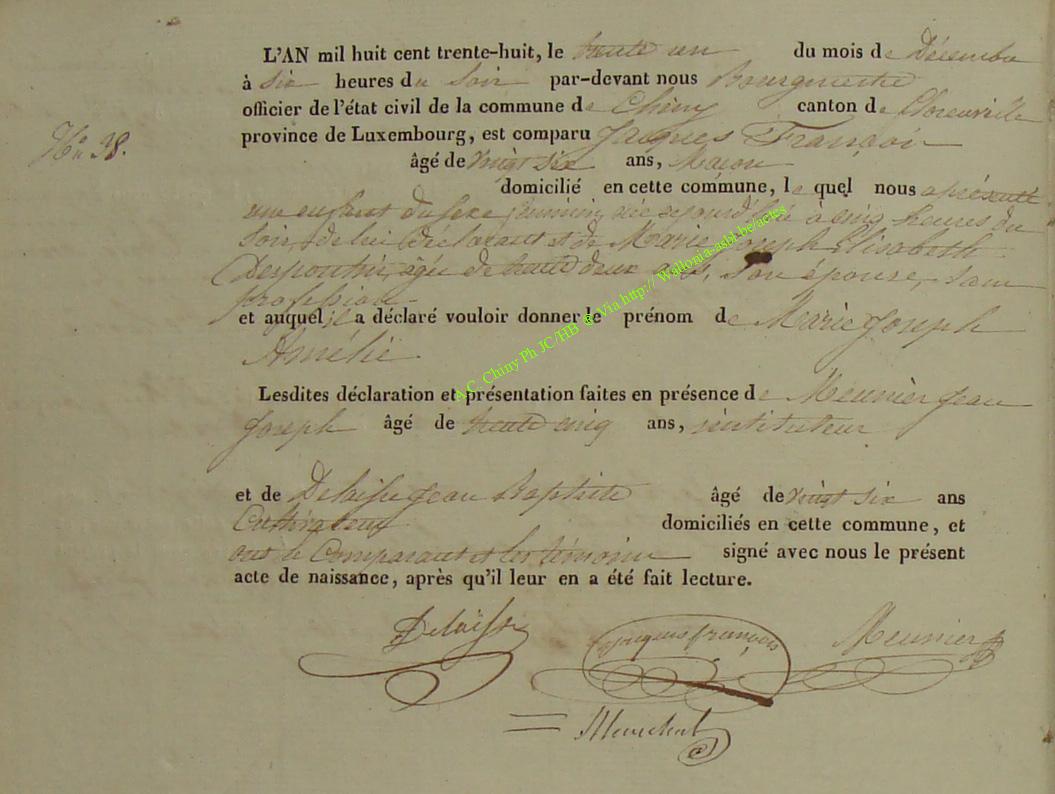 L'AN mil huit cent trente-huit, le trente un du mois de Décembre
à six heures du Soir par-devant nous Bourgmestre
officier de l'état civil de la commune de Chiny canton de florenville
N° 38.
province de Luxembourg, est comparu Jacques François
âgé de vingt six ans, Maçon
domicilié en cette commune, le quel nous a présenté
un enfant du sexe féminin, née aujourd'hui à cinq heures du
soir, de lui Déclarant et de Marie Joseph Elisabeth
âgée de trente deux ans, son épouse, sans
profession
et auquel il a déclaré vouloir donner le prénom de Marie Joseph
Amélie
Lesdites déclaration et présentation faites en présence de Meunier Jean
Joseph âgé de trente cinq ans, instituteur
et de Delaisse Jean Baptiste âgé de vingt six ans
Cultivateur domiciliés en cette commune, et
ont le Comparant et les témoins signé avec nous le présent
acte de naissance, après qu'il leur en a été fait lecture.
Delaisse Jacques françois Meunier
A.C. Chiny Ph JC/HB © Via http:// Wallonia-asbl.be/actes